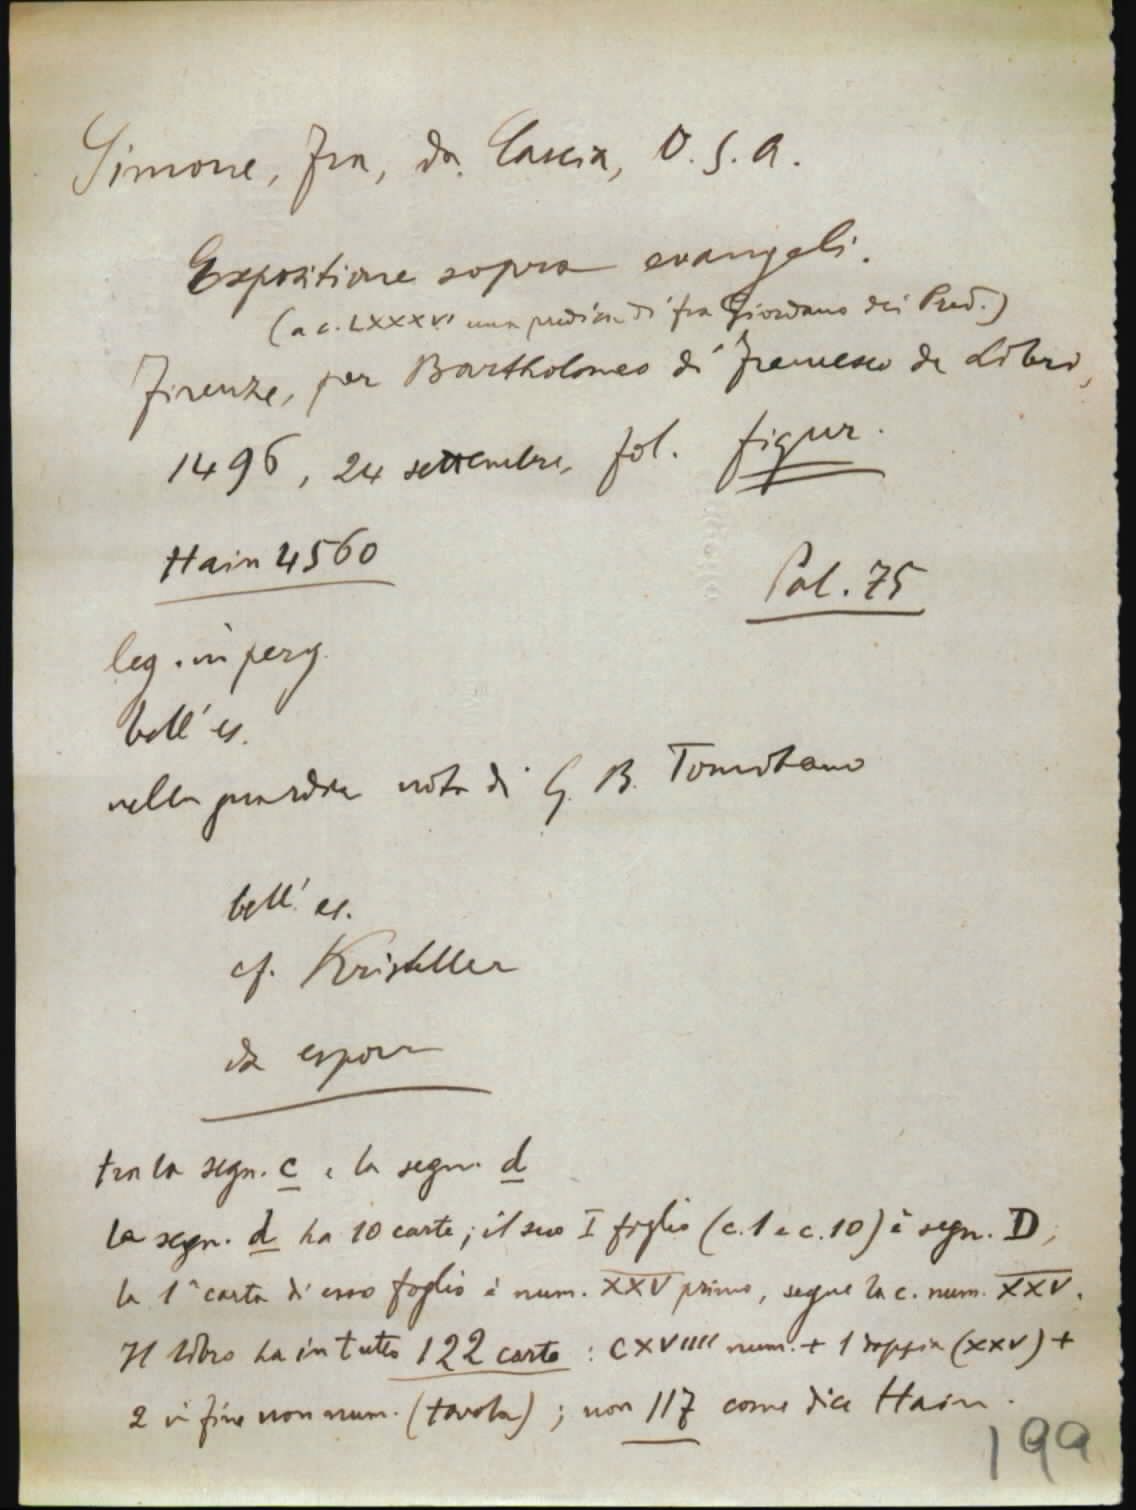 Simone, fra, da Cascia, O. S. A.
Expositione sopra evangeli.
(a c. LXXXVI una predica di fra Giordano dei Pred.)
Firenze, per Bartholomeo di Francesco de Libri,
1496, 24 settembre, fol. figur.
Hain 4560
Pal. 75
leg. in perg.
bell' es.
nella guardia nota di G. B. Tomitano
bell' es.
cf. Kristeller
da esporre
tra la segn. c e la segn. d
la segn. d ha 10 carte; il suo I foglio (c. 1 e c. 10) è segn. D;
la 1ª carta di esso foglio è num. XXV primo, segue la c. num. XXV.
Il libro ha in tutto 122 carte : CXVIIII num. + 1 doppia (XXV) +
2 in fine non num. (tavola) ; non 117 come dice Hain.
199